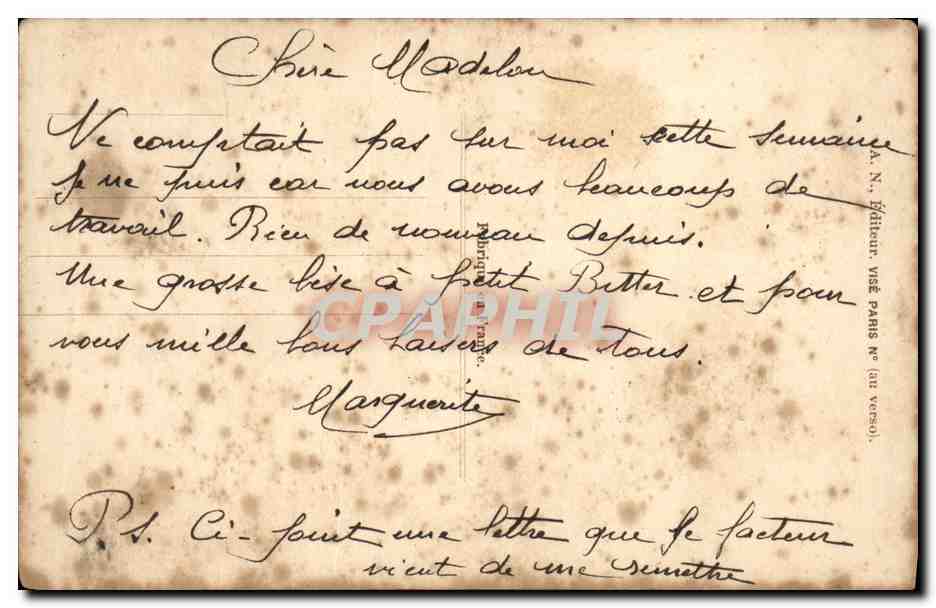 Chère Madelon
Ne comptait pas sur moi cette semaine
je ne puis car nous avons beaucoup de
travail. Rien de nouveau depuis.
Une grosse bise à petit Better et pour
vous mille bons baisers de Tous.
Marguerite
P.S. Ci-joint une lettre que le facteur
vient de me remettre
Fabriqué en France.
A. N., Éditeur, VISÉ PARIS N° (au verso).
CPAPHIL